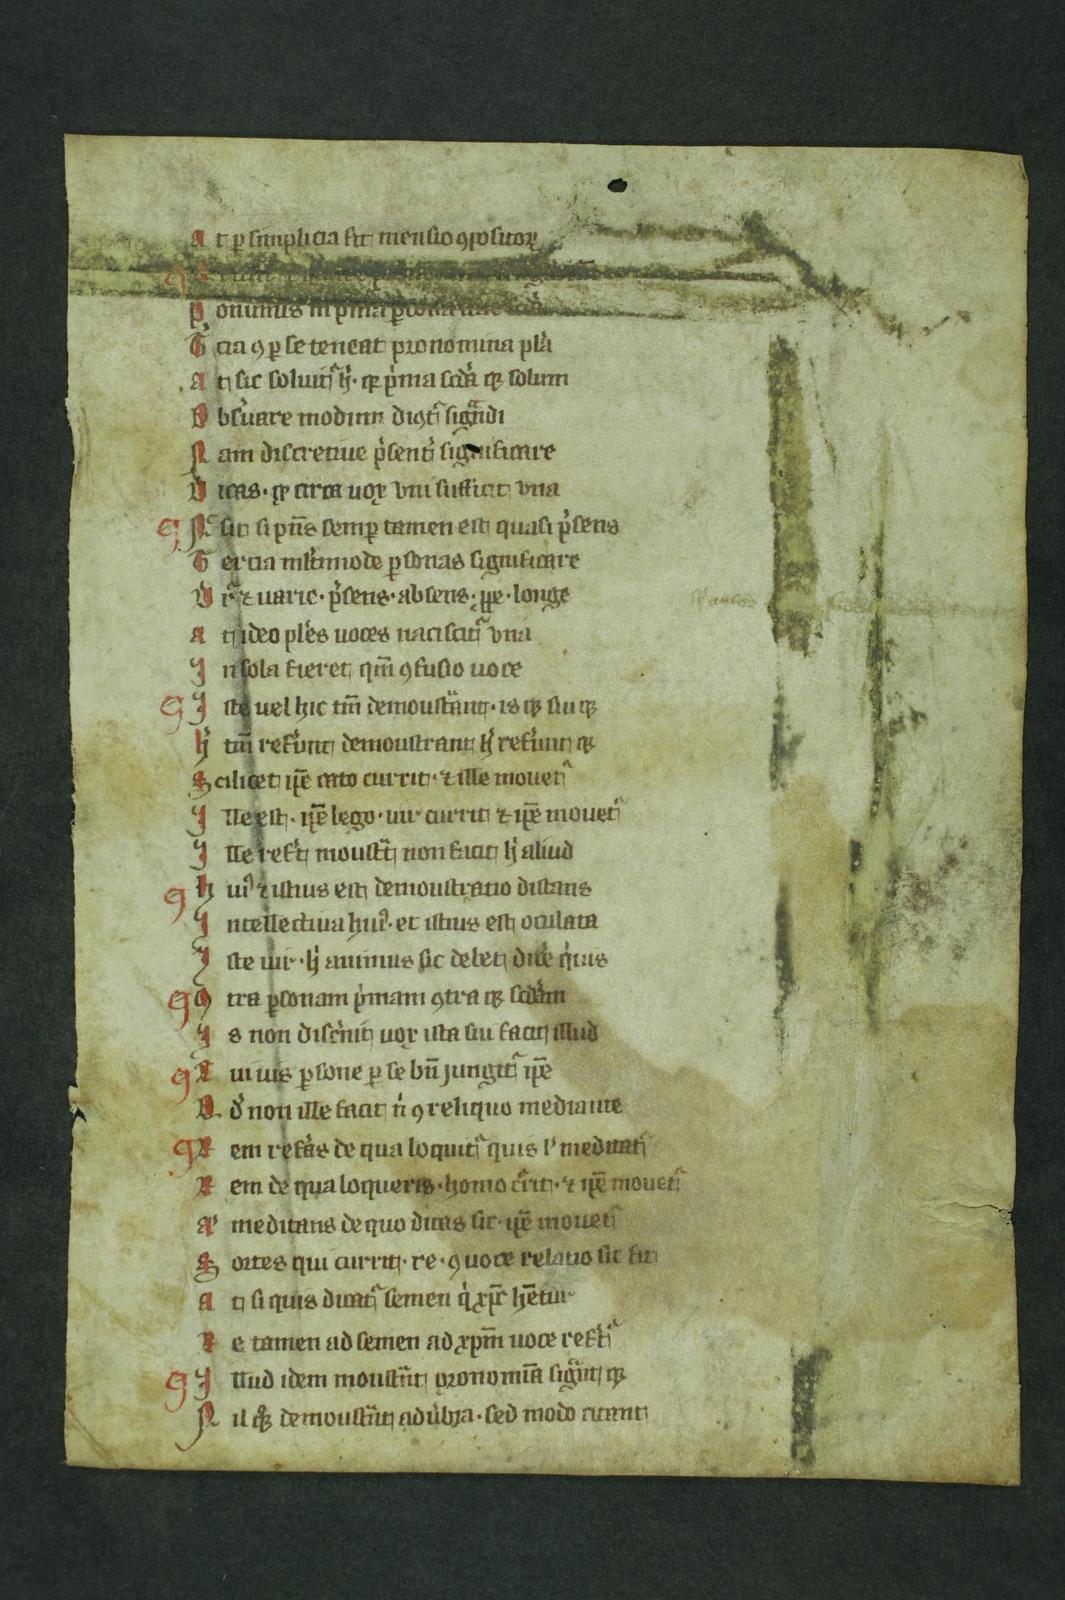 At ꝑ simplicia fit mensio ꝯpositoꝝ
Ponimus in pͥma ꝑsona
Tͥcia ꝯ ꝑ se teneat pronomina plͣa
At sic soluitᷣ ħ· qꝛ pͥma scd̾a qꝫ solum
Obs̾uare modum dicitᷣ sigᷓndi
Nam discretiue p̾senti significare
Dicas· qꝛ circa uox vni sufficit vna
Nō sit si pn̄s semꝑ tamen est quasi p̾sens
Tercia mlt̾imode ꝑsonas significare
Dicitᷣ ⁊ uarie· p̾sens· absens· ꝓpe· longe
At ideo ples uoces naciscitᷣ vna
In sola fieret qm̄ ꝯfusio uoce
Iste uel hic tm̄ demonstᷓnt· is qꝫ sui qꝫ
Hͥ tm̄ ref̾unt demonstrant hͥ ref̾unt qꝫ
Scilicet ip̄e cato currit· ⁊ ille mouetᷣ
Ille est· ip̄e lego· uir currit ⁊ ip̄e mouetᷣ
Ille ref̾t monst̾t non facit hͥ aliud
Huiꝰ ⁊ istius est demonstratio distans
Intellectiua huiꝰ· et istius est oculata
Iste uir· hͥ animus sic debet dic̾e quis
Cōtra ꝑsonam pͥmam ꝯtra qꝫ scd̾am
Is non disc̾nit uox ista sui facit illud
Cuiuis ꝑsone ꝑ se bn̄ jungitᷣ ip̄e
Qd̾ non ille facit nͥ ꝯ reliquo mediante
Rem ref̾as de qua loquitᷣ quis lͥ meditatᷣ
Rem de qua loqueris· homo c̾rit· ⁊ ip̄e mouetᷣ
Aͭ meditans de quo dicas sic· ip̄e mouetᷣ
Sortes qui currit· re· ꝯ uoce relatio sic fit
At si quis dicatᷣ semen qͥ xp̄c hētur
Re tamen ad semen ad xp̄m uoce ref̾tᷣ
Illud idem monst̾nt pronomīa sigᷓnt qꝫ
Nil qꝫ demonst̾nt adu̾bia· sed modo citant